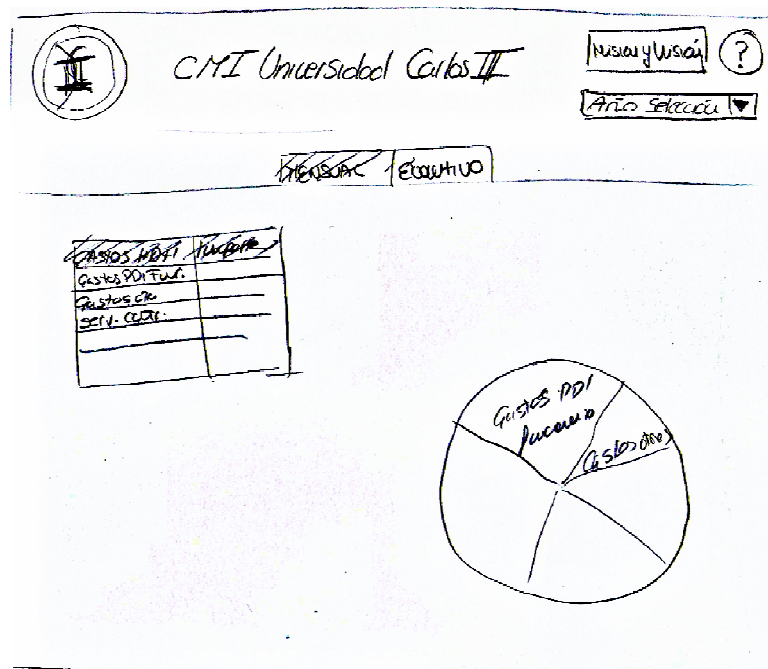 CMI Universidad Carlos III
Misión y Visión
?
Año Selección
MENSUAL
EVOLUTIVO
GASTOS
Gastos PDI Fun.
Gastos de
serv.
Gastos PDI
Gastos otros